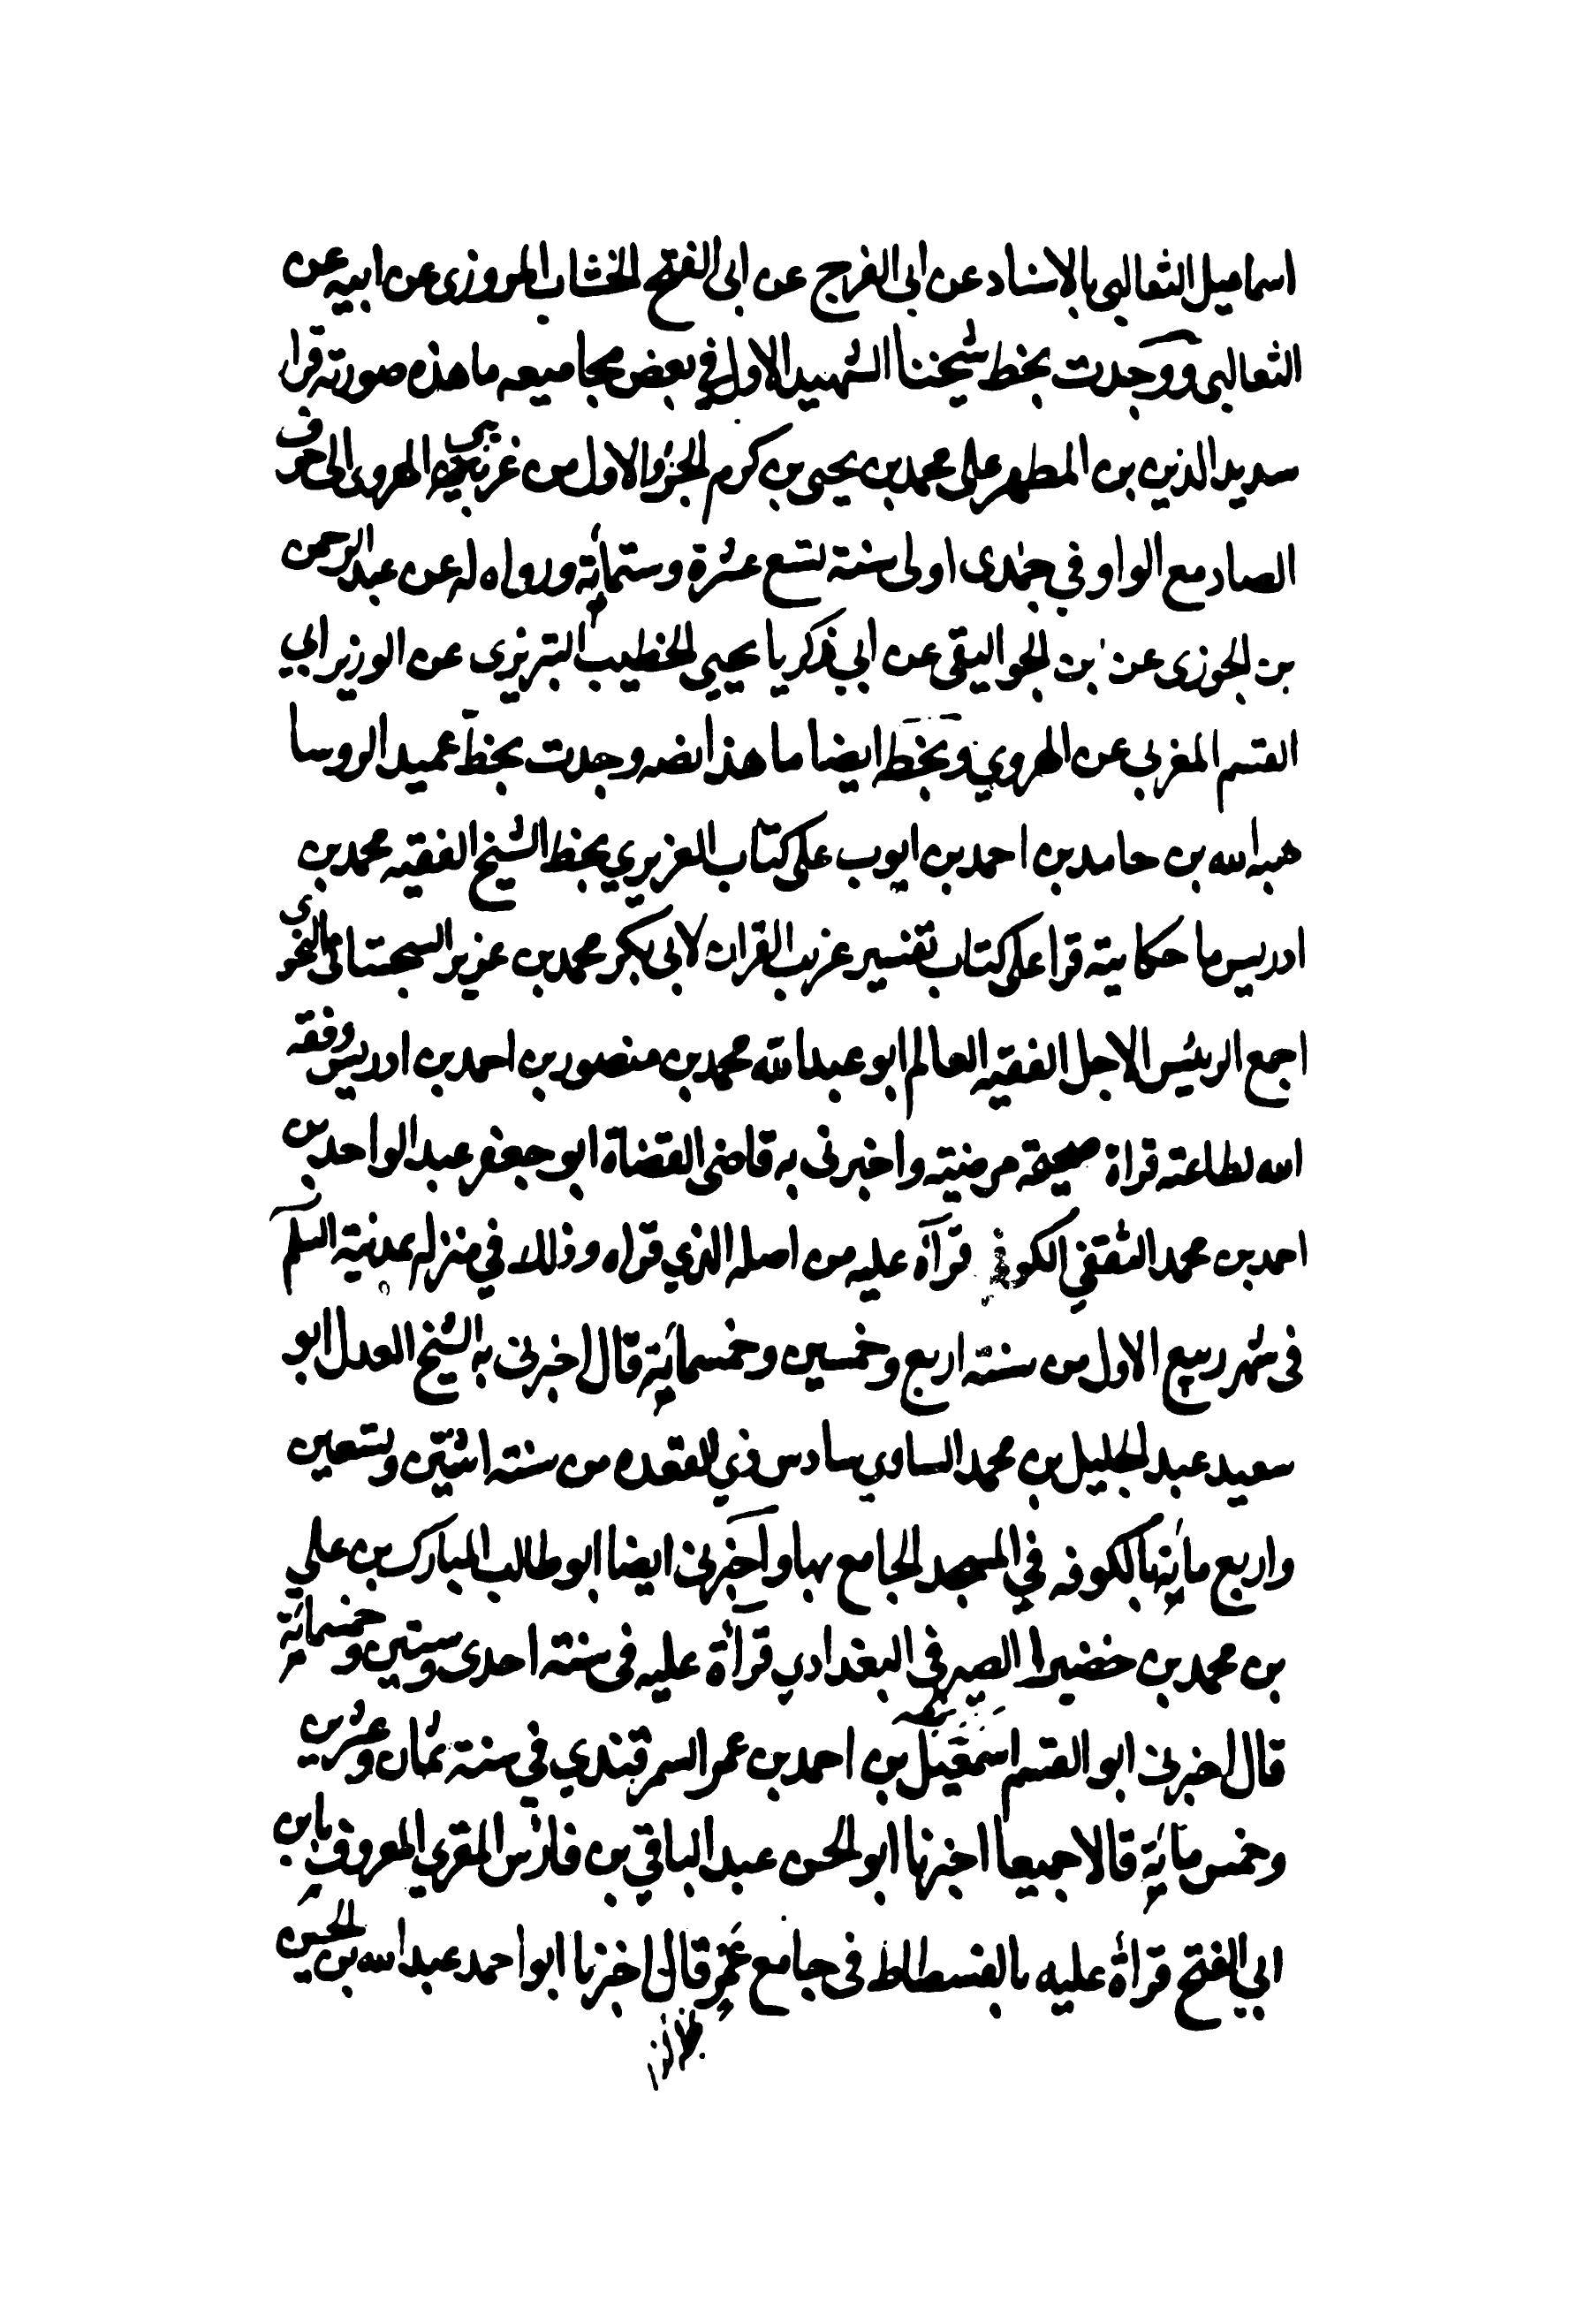 اسماعيل الثعالبى بالاسناد عن ابى الفرج عن ابى الفتح الخشاب المروزى عن ابيه عن
الثعالبى ووجدت بخط شيخنا الشهيد الاول في بعض مجاميعه ما هذه صورته قرا
سديد الدين بن المطهر على محمد بن يحيى بن كرم الجزؤ الاول من غريبي الهروى الى حرف
الصاد مع الواو في جمدى اولى سنة تسع عشرة وستمائة ورواه له عن عبد الرحمن
بن الجوزى عن بن الجواليقى عن ابي زكريا يحيى الخطيب التبريزى عن الوزير ابي
القسم المغربى عن الهروي وبخطه ايضا ما هذا نصه وجدت بخط عميد الروسا
هبه الله بن حامد بن احمد بن ايوب على كتاب العزيزي بخط الشيخ الفقيه محمد بن
ادريس ما حكايته قرا على كتاب تفسير غريب القران لابى بكر محمد بن عزيز السجستانى النحوى
اجمع الرئيس الاجل الفقيه العالم ابو عبد الله محمد بن منصور بن احمد بن ادريس وفقه
الله لطاعته قراة صحيحة مرضيته واخبرنى به قاضى القضاة ابو جعفر عبد الواحد بن
احمد بن محمد الثقفي الكوفي قرآة عليه من اصله الذي قراه وذلك في منزله بمدينة السلم
فى شهر ربيع الاول من سنته اربع وخمسين وخمسمائة قال اخبرنى به الشيخ العدل ابو
سعيد عبد الجليل بن محمد الساوي سادس ذي القعده من سنته اثنتين وتسعين
واربع مائة بالكوفه في المسجد الجامع بها واخبرنى ايضا ابو طالب المبارك بن علي
بن محمد بن خضير الصيرفى البغدادي قرآة عليه فى سنته احدى وستين وخمسمائة
قال اخبرنى ابو القسم اسمعيل بن احمد بن عمر السمرقندي في سنة ثمان وعشرين
وخمس مائة قالا جميعا اخبرنا ابو الحسن عبد الباقي بن فارس المقري المعروف بابن
ابي الفتح قراة عليه بالفسطاط فى جامع عمر قال اخبرنا ابو احمد عبد الله بن الحسين